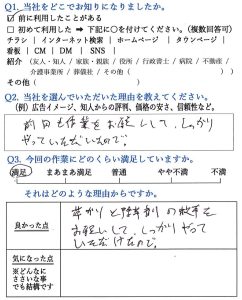 Q1. 当社をどこでお知りになりましたか。
☑ 前に利用したことがある
□ 初めて利用した ➡ 下記に○を付けてください。(複数回答可)
チラシ | インターネット検索 | ホームページ | タウンページ
看板 | CM | DM | SNS |
紹介 (友人・知人 / 家族・親族 / 役所 / 行政書士 / 病院 / 不動産 / 介護事業所 / 葬儀社 / その他 ( ))
その他
Q2. 当社を選んでいただいた理由を教えてください。
(例)広告イメージ、知人からの評判、価格の安さ、信頼性など。
前回も作業をお願いして、しっかり
やっていただいたので。
Q3. 今回の作業にどのくらい満足していますか。
満足 まあまあ満足 普通 やや不満 不満
それはどのような理由からですか。
良かった点
草かりと除草剤の散布を
お願いして、しっかりやって
いただけたので。
気になった点
※どんなに
ささいな事
でも結構です